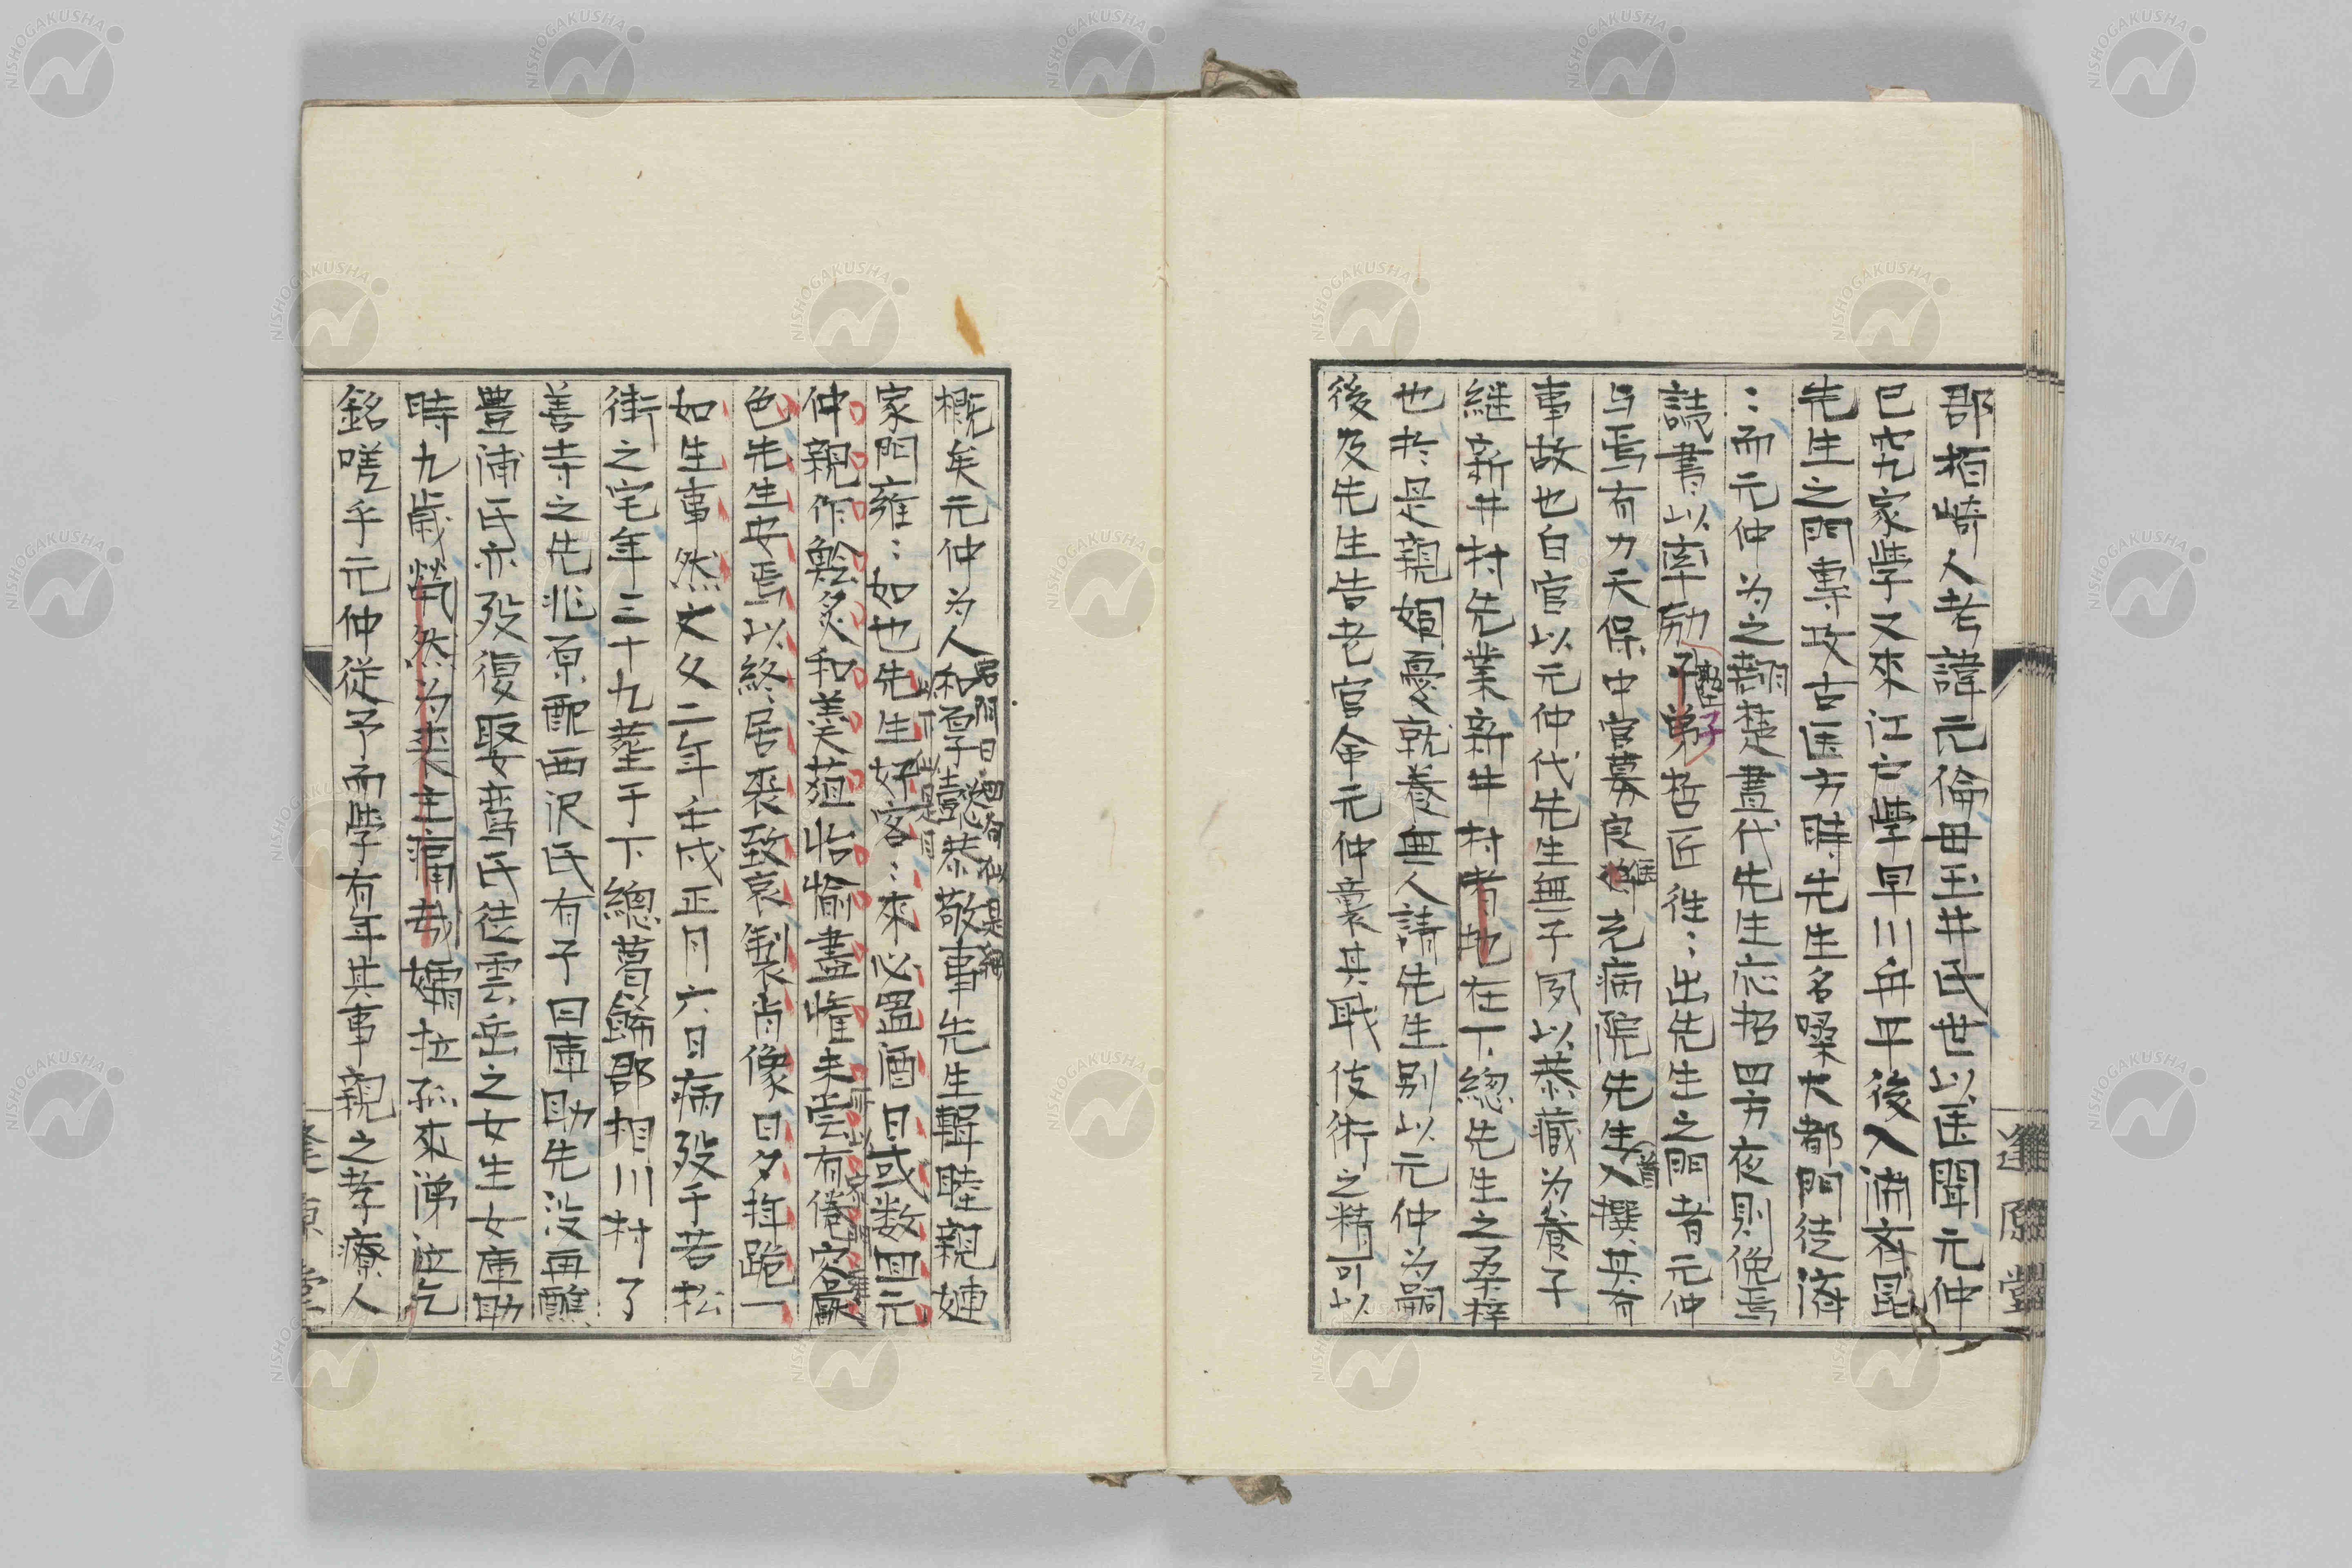 郡栢崎人考諱元倫毋玉井氏世以医聞元仲
已究家學又來江戸學早川舟平後入済斉昆
先生之門専攻古医方時先生名噪大都門徒濟
〻而元仲為之翹楚晝代先生応招四方夜則俛焉
誌書以率励子弟哲匠徃〻出先生之門者元仲
塾子
与焉有力天保中官募良之病院先生入撰其有
医
首
事故也白官以元仲代先生無子夙以恭蔵為養子
継新井村先業新井村者也在下総先生之桑梓
也於是親有憂就養無人請先生別以元仲為嗣
後及先生告老官命元仲襲其職伎術之精可以
概矣元仲為人和厚恭敬事先生輯睦親
家門雍〻如也先生好客〻来必置酒日或数回元
仲親作鱠炙和羹葅怡愉盡懽未嘗有倦容
色先生安焉以終居喪致哀製肖像日夕拝跪一
如生事然文久二年壬戌正月六日病歿于若松
街之宅年三十九葬于下總葛飾郡相川村了
善寺之先兆原配西沢氏有子曰庫助先没再醮
豊浦氏亦歿復娶菅氏徒雲岳之女生女庫助
時九歳煢然為喪主痛哉孀拉孤來涕泣乞
銘嗟乎元仲従予而學有年其事親之孝療人
逢原堂
NISHOGAKUSHA